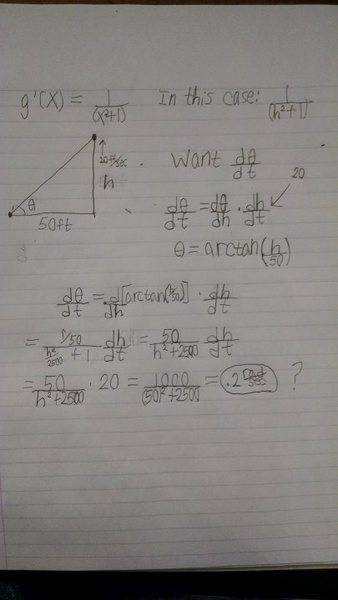 g'(x) = 1/(x²+1)   In this case: 1/(h²+1)
20ft/sec
h
θ
50ft
Want dθ/dt
20
dθ/dt = dθ/dh · dh/dt
θ = arctan(h/50)
dθ/dt = d/dh [arctan(h/50)] · dh/dt
= (1/50)/(h²/2500 + 1) dh/dt = 50/(h²+2500) dh/dt
= 50/(h²+2500) · 20 = 1000/((50)²+2500) = .2 rad/sec ?